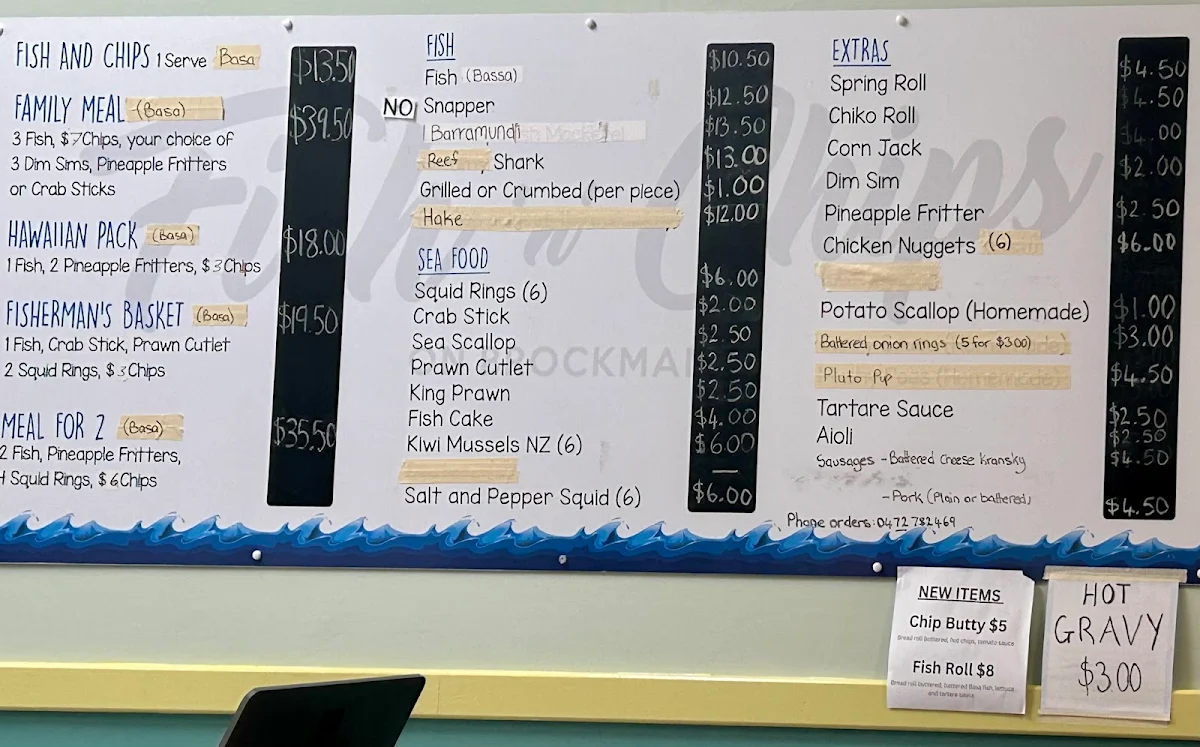 FISH AND CHIPS 1 Serve Basa $13.50
FAMILY MEAL (Basa) $39.50
3 Fish, $7Chips, your choice of
3 Dim Sims, Pineapple Fritters
or Crab Sticks
HAWAIIAN PACK (Basa) $18.00
1 Fish, 2 Pineapple Fritters, $3Chips
FISHERMAN'S BASKET (Basa) $19.50
1 Fish, Crab Stick, Prawn Cutlet
2 Squid Rings, $3Chips
MEAL FOR 2 (Basa) $35.50
2 Fish, Pineapple Fritters,
4 Squid Rings, $6Chips
FISH
Fish (Bassa) $10.50
NO Snapper $12.50
1 Barramundi $13.50
Reef Shark $13.00
Grilled or Crumbed (per piece) $1.00
Hake $12.00
SEA FOOD
Squid Rings (6) $6.00
Crab Stick $2.00
Sea Scallop $2.50
Prawn Cutlet $2.50
King Prawn $2.50
Fish Cake $4.00
Kiwi Mussels NZ (6) $6.00
—
Salt and Pepper Squid (6) $6.00
EXTRAS
Spring Roll $4.50
Chiko Roll $4.50
Corn Jack $4.00
Dim Sim $2.00
Pineapple Fritter $2.50
Chicken Nuggets (6) $6.00
Potato Scallop (Homemade) $1.00
Battered onion rings (5 for $3.00) $3.00
Pluto Pup $4.50
Tartare Sauce $2.50
Aioli $2.50
Sausages - Battered Cheese Kransky $4.50
- Pork (Plain or battered) $4.50
Phone orders: 0472 782469
Fish n' Chips
ON BROCKMA
NEW ITEMS
Chip Butty $5
Bread roll buttered, hot chips, tomato sauce
Fish Roll $8
Bread roll buttered, battered Basa fish, lettuce
and tartare sauce
HOT
GRAVY
$3.00